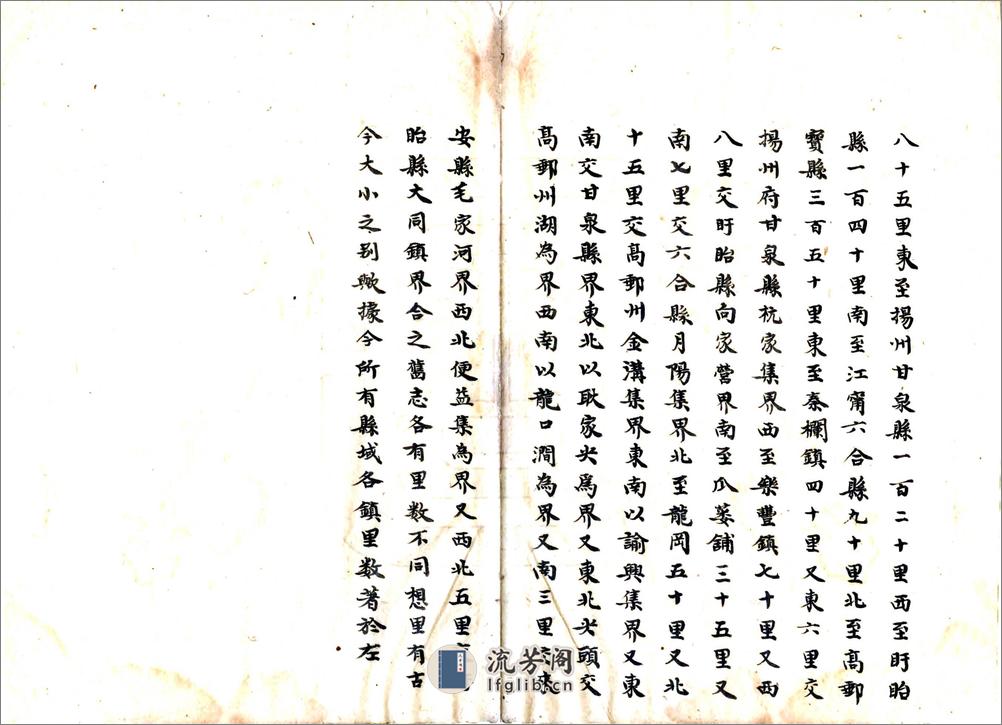 八十五里東至揚州甘泉縣一百二十里西至盱眙
縣一百四十里南至江甯六合縣九十里北至高郵
寶縣三百五十里東至秦欄鎮四十里又東六里交
揚州府甘泉縣杭家集界西至樂豐鎮七十里又西
八里交盱眙縣向家營界南至瓜蔞舖三十五里又
南七里交六合縣月陽集界北至龍岡五十里又北
十五里交高郵州金溝集界東南以諭興集界又東
南交甘泉縣界東北以耿家尖爲界又東北尖頭交
高郵州湖為界西南以龍口澗為界又南三里交來
安縣毛家河界西北便益集為界又西北五里
眙縣大同鎮界合之舊志各有里数不同想里有古
今大小之别歟據今所有縣域各鎮里数著於左
流芳阁
lfglib.cn